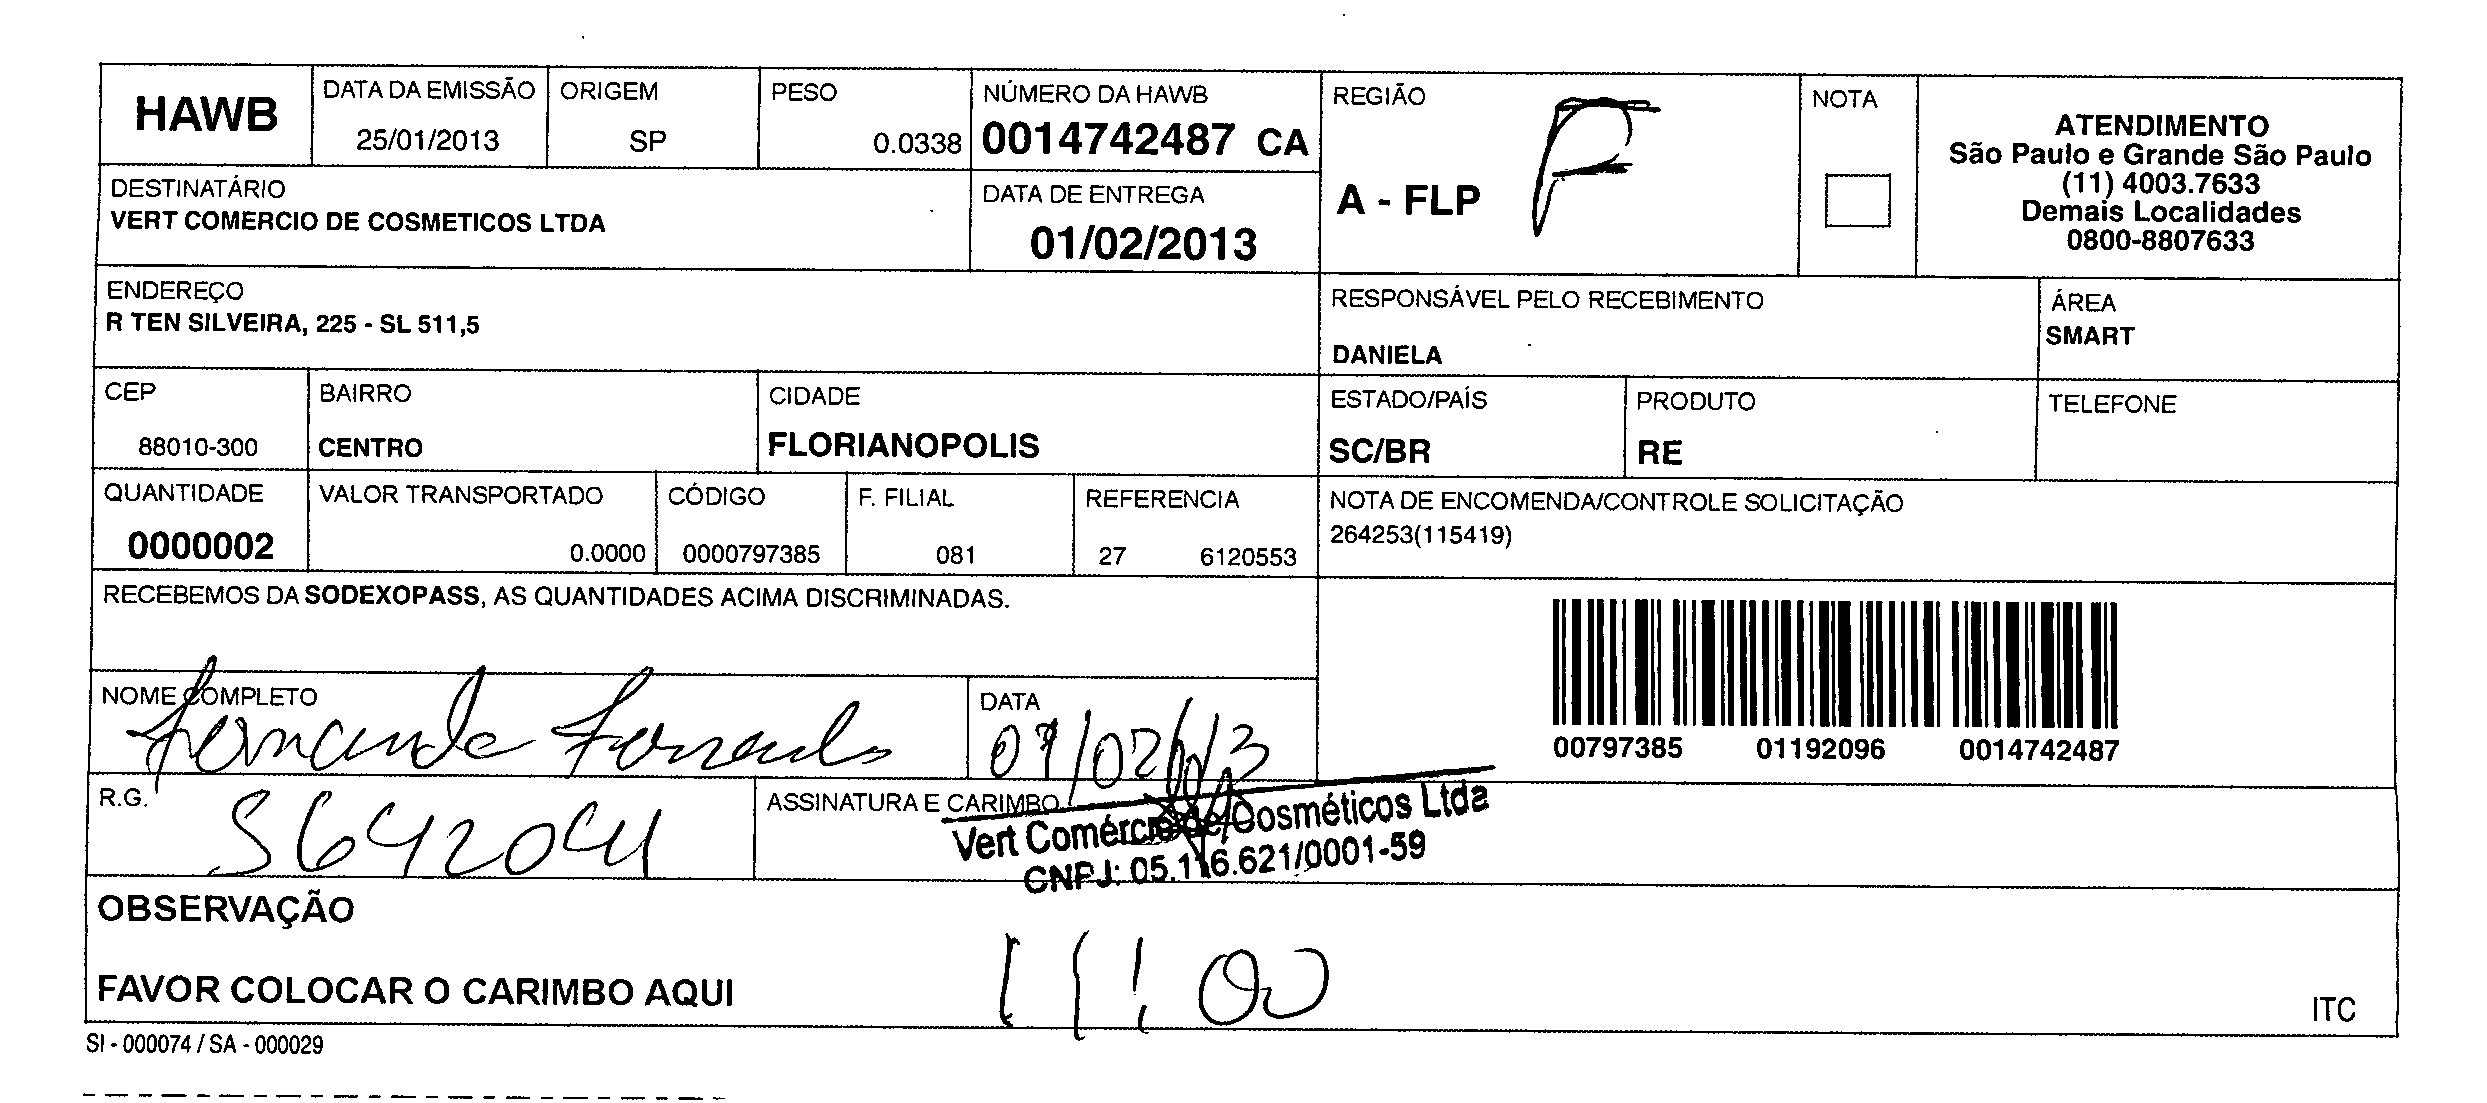 HAWB
DATA DA EMISSÃO
25/01/2013
ORIGEM
SP
PESO
0.0338
NÚMERO DA HAWB
0014742487 CA
REGIÃO
A - FLP
F
NOTA
ATENDIMENTO
São Paulo e Grande São Paulo
(11) 4003.7633
Demais Localidades
0800-8807633
DESTINATÁRIO
VERT COMERCIO DE COSMETICOS LTDA
DATA DE ENTREGA
01/02/2013
ENDEREÇO
R TEN SILVEIRA, 225 - SL 511,5
RESPONSÁVEL PELO RECEBIMENTO
DANIELA
ÁREA
SMART
CEP
88010-300
BAIRRO
CENTRO
CIDADE
FLORIANOPOLIS
ESTADO/PAÍS
SC/BR
PRODUTO
RE
TELEFONE
QUANTIDADE
0000002
VALOR TRANSPORTADO
0.0000
CÓDIGO
0000797385
F. FILIAL
081
REFERENCIA
27 6120553
NOTA DE ENCOMENDA/CONTROLE SOLICITAÇÃO
264253(115419)
RECEBEMOS DA SODEXOPASS, AS QUANTIDADES ACIMA DISCRIMINADAS.
00797385 01192096 0014742487
NOME COMPLETO
Fernanda
DATA
R.G.
3642041
ASSINATURA E CARIMBO
Vert Comércio de Cosméticos Ltda
CNPJ: 05.116.621/0001-59
OBSERVAÇÃO
FAVOR COLOCAR O CARIMBO AQUI
11:00
ITC
SI - 000074 / SA - 000029